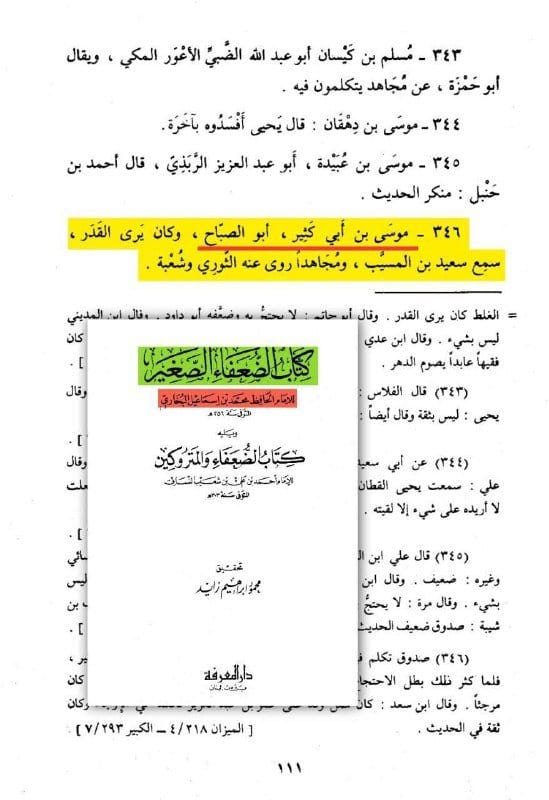 ٣٤٣ - مُسلم بن كَيْسان أبو عبد الله الضَّبيِّ الأعْوَر المكي ، ويقال
أبو حَمْزَة ، عن مُجَاهد يتكلمون فيه .
٣٤٤ - موسَى بن دِهْقَان : قال يَحيى أفْسَدُوه بآخَرَة.
٣٤٥ - موسَى بن عُبَيْدة ، أَبو عبد العزيز الرَّبَذِيّ ، قال أحمد بن
حَنْبل : منكر الحديث .
٣٤٦ - موسَى بن أبي كَثِير ، أبو الصبّاح ، وكان يَرى القَدَر ،
سمِع سعيد بن المسيَّب ، ومُجَاهداً روى عنه الثَّوري وشُعْبة .
= الغلط كان يرى القدر . وقال أبو حاتم : لا يحتجُّ به وضعَّفه أبو داود . وقال ابن المديني
ليس بشيء . وقال ابن عدي
فقيهاً عابداً يصوم الدهر . ] .
(٣٤٣) قال الفلاس : وقال
يحيى : ليس بثقة وقال أيضاً :
(٣٤٤) عن أبي سعيد وقال
علي : سمعت يحيى القطان
لا أريده على شيء إلا لقيته . ] .
(٣٤٥) قال علي ابن
وغيره : ضعيف . وقال ابن ليس
بشيء . وقال مرة : لا يحتجُّ
شيبة : صدوق ضعيف الحديث ] .
(٣٤٦) صدوق تكلم
فلما كثر ذلك بطل الاحتجا كان
مرجئاً . وقال ابن سعد : كان وكان
ثقة في الحديث . [ الميزان ٤/٢١٨ – الكبير ٧/٢٩٣ ]
١١١
كِتَابُ الضُّعَفَاءِ الصَّغِير
للإمام الحافظ محمد بن إسماعيل البخاري
المتوفى سنة ٢٥٦ هـ
ويليه
كِتَابُ الضُّعَفَاء وَالمَتْرُوكين
للإمام أحمد بن علي بن شعيب النسائي
المتوفى سنة ٣٠٣ هـ
تحقيق
محمود إبراهيم زايد
دار المعرفة
بيروت - لبنان